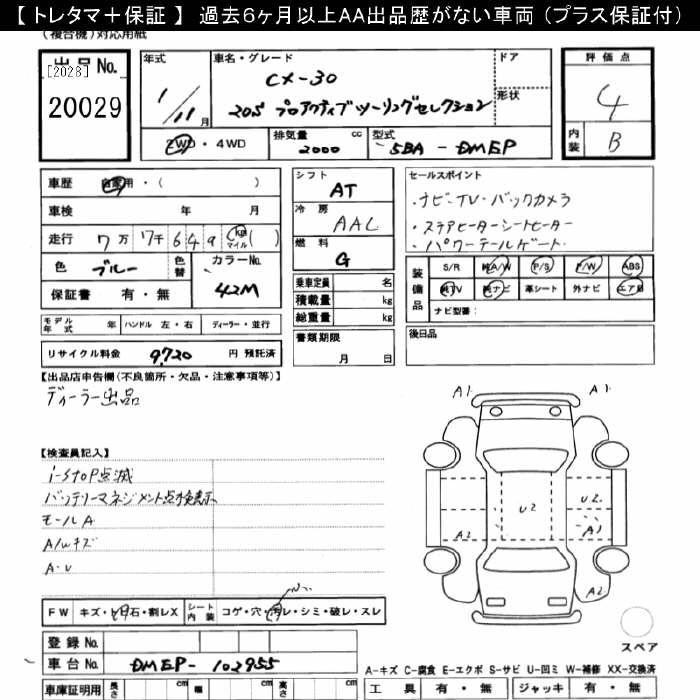 【 トレタマ＋保証 】 過去６ヶ月以上ＡＡ出品歴がない車両 （プラス保証付）
(複合機)対応用紙
出品No.
[2028]
20029
年式
1/11月
車名・グレード
CX-30
20S プロアクティブツーリングセレクション
ドア
形状
2WD・4WD
排気量 cc
2000
型式
5BA - DMEP
評価点
4
内装
B
車歴 自家用・( )
車検 年 月
走行 7万7千649 km マイル ( )
色 ブルー 色替
カラーNo.
42M
保証書 有・無
モデル年式 年 ハンドル 左・右 ディーラー・並行
リサイクル料金 9720 円 預託済
シフト
AT
冷房
AAC
燃料
G
乗車定員 名
積載量 kg
総重量 kg
書類期限
月 日
セールスポイント
・ナビ・TV・バックカメラ
・ステアヒーター・シートヒーター
・パワーテールゲート・
装備品
S/R 純A/W P/S P/W ABS
純TV 純ナビ 革シート 外ナビ エアB
ナビ型番:
後日品
【出品店申告欄(不良箇所・欠品・注意事項等)】
ディーラー出品
【検査員記入】
i-stop点滅
バッテリーマネジメント点検表示
モールA
A/Wキズ
A・U
A1 A1
U2 U2
A2 A1
A2
スペア
FW キズ・ヒ石・割レX シート内装 コゲ・穴・汚レ・シミ・破レ・スレ
登録No.
車台No. DMEP- 102955
車庫証明用 長さ cm 幅 cm 高さ cm
A-キズ C-腐食 E-エクボ S-サビ U-凹ミ W-補修 XX-交換済
工具 有・無 ジャッキ 有・無